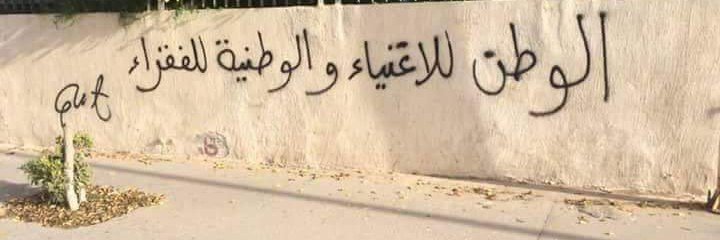 الوطن للاغنياء والوطنية للفقراء